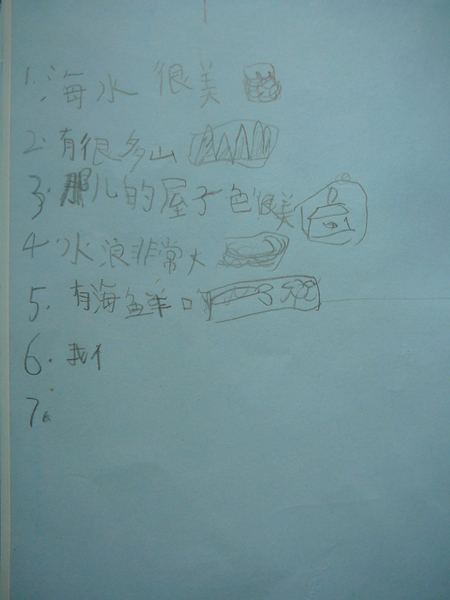 1. 海水很美
2. 有很多山
3. 那儿的屋子色很美
4. 水浪非常大
5. 有海鲜口
6. 我们
7.